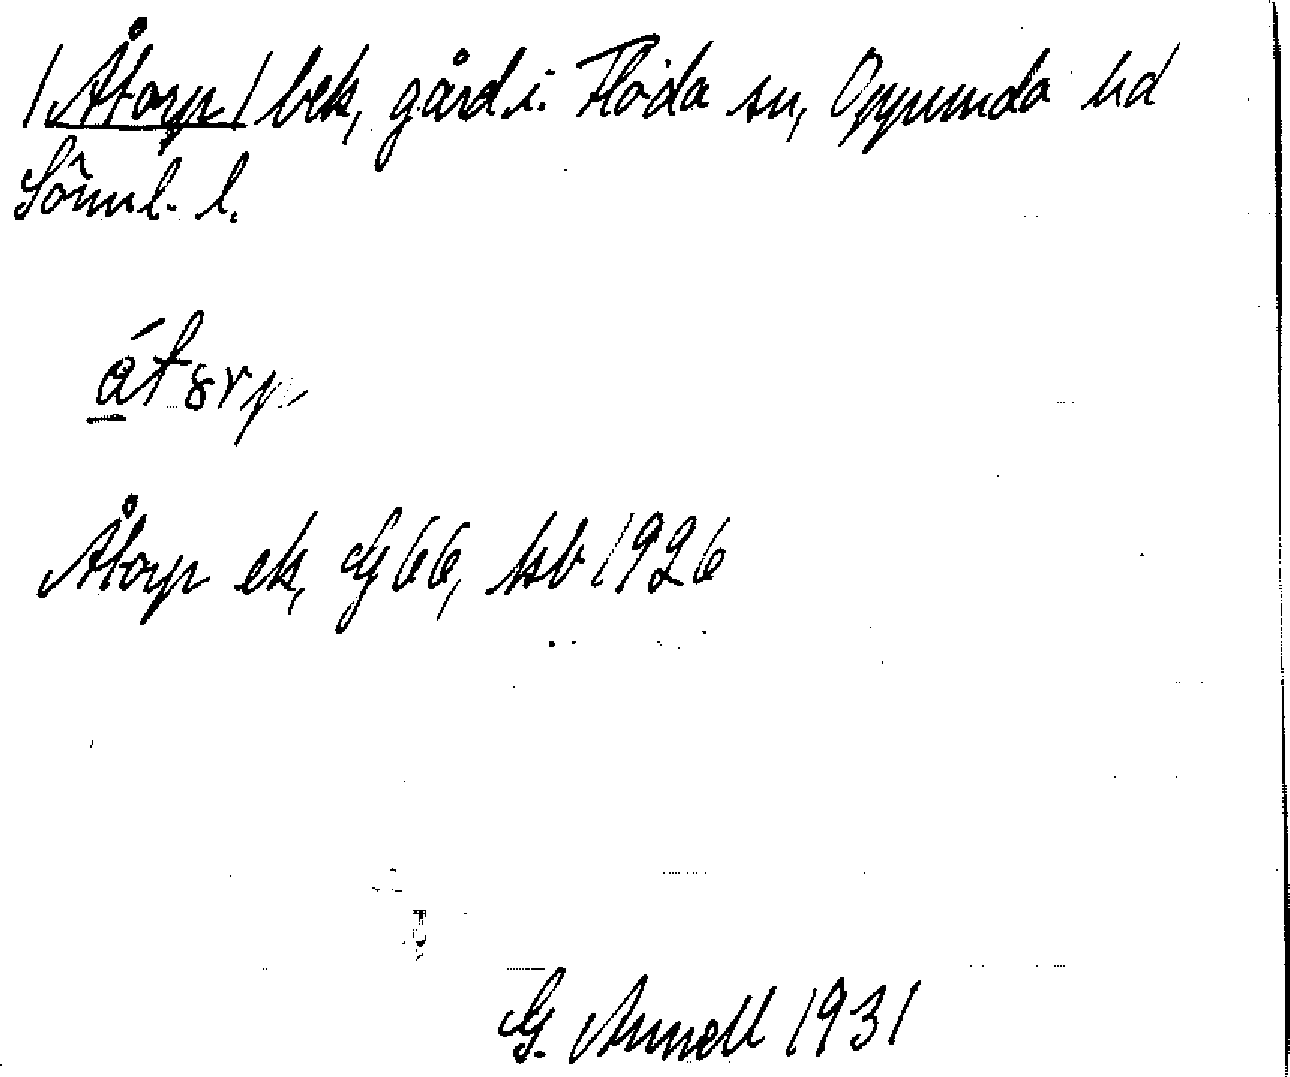 /Åtorp/ bek, gård i. Floda sn, Oppunda hd
Sörml. l.
átȣrp
Åtorp ek, Gg 66, hsb 1926
G. Arnell 1931